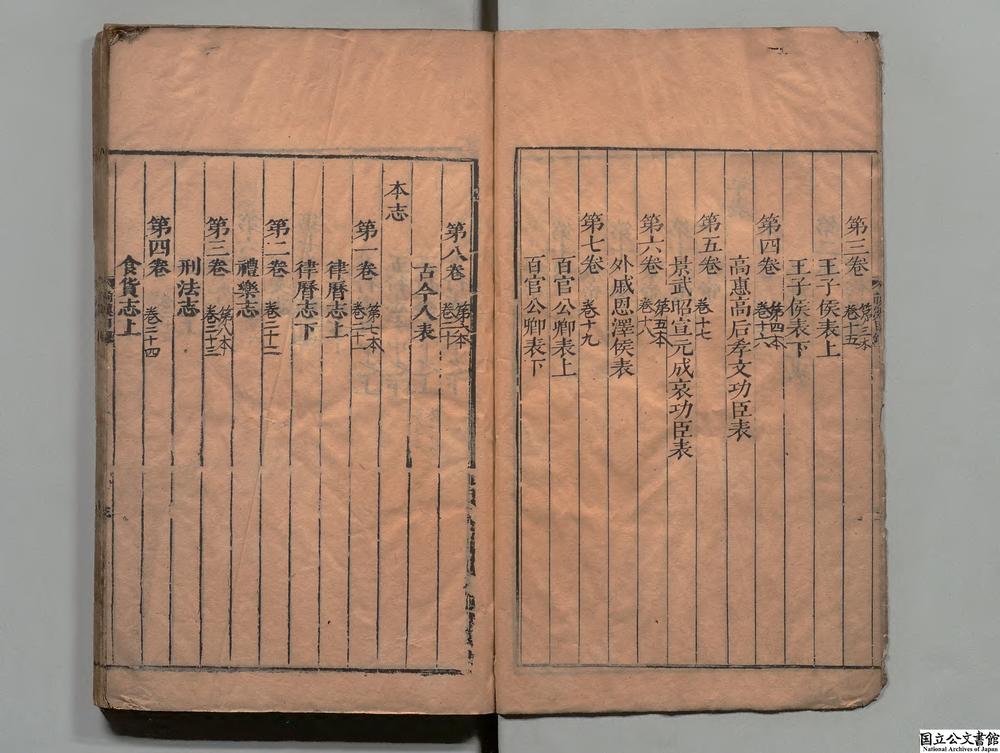 第三卷 第三本 卷十五
王子侯表上
王子侯表下
第四卷 第四本 卷十六
高惠高后孝文功臣表
第五卷 卷十七
景武昭宣元成哀功臣表
第六卷 第五本 卷十八
外戚恩澤侯表
第七卷 卷十九
百官公卿表上
百官公卿表下
第八卷 第六本 卷二十
古今人表
本志
第一卷 第七本 卷二十一
律曆志上
律曆志下
第二卷 卷二十二
禮樂志
第三卷 第八本 卷二十三
刑法志
第四卷 卷二十四
食貨志上
国立公文書館
National Archives of Japan